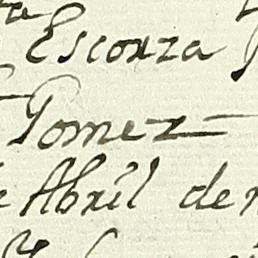 Escorza
Gomez
Abril de